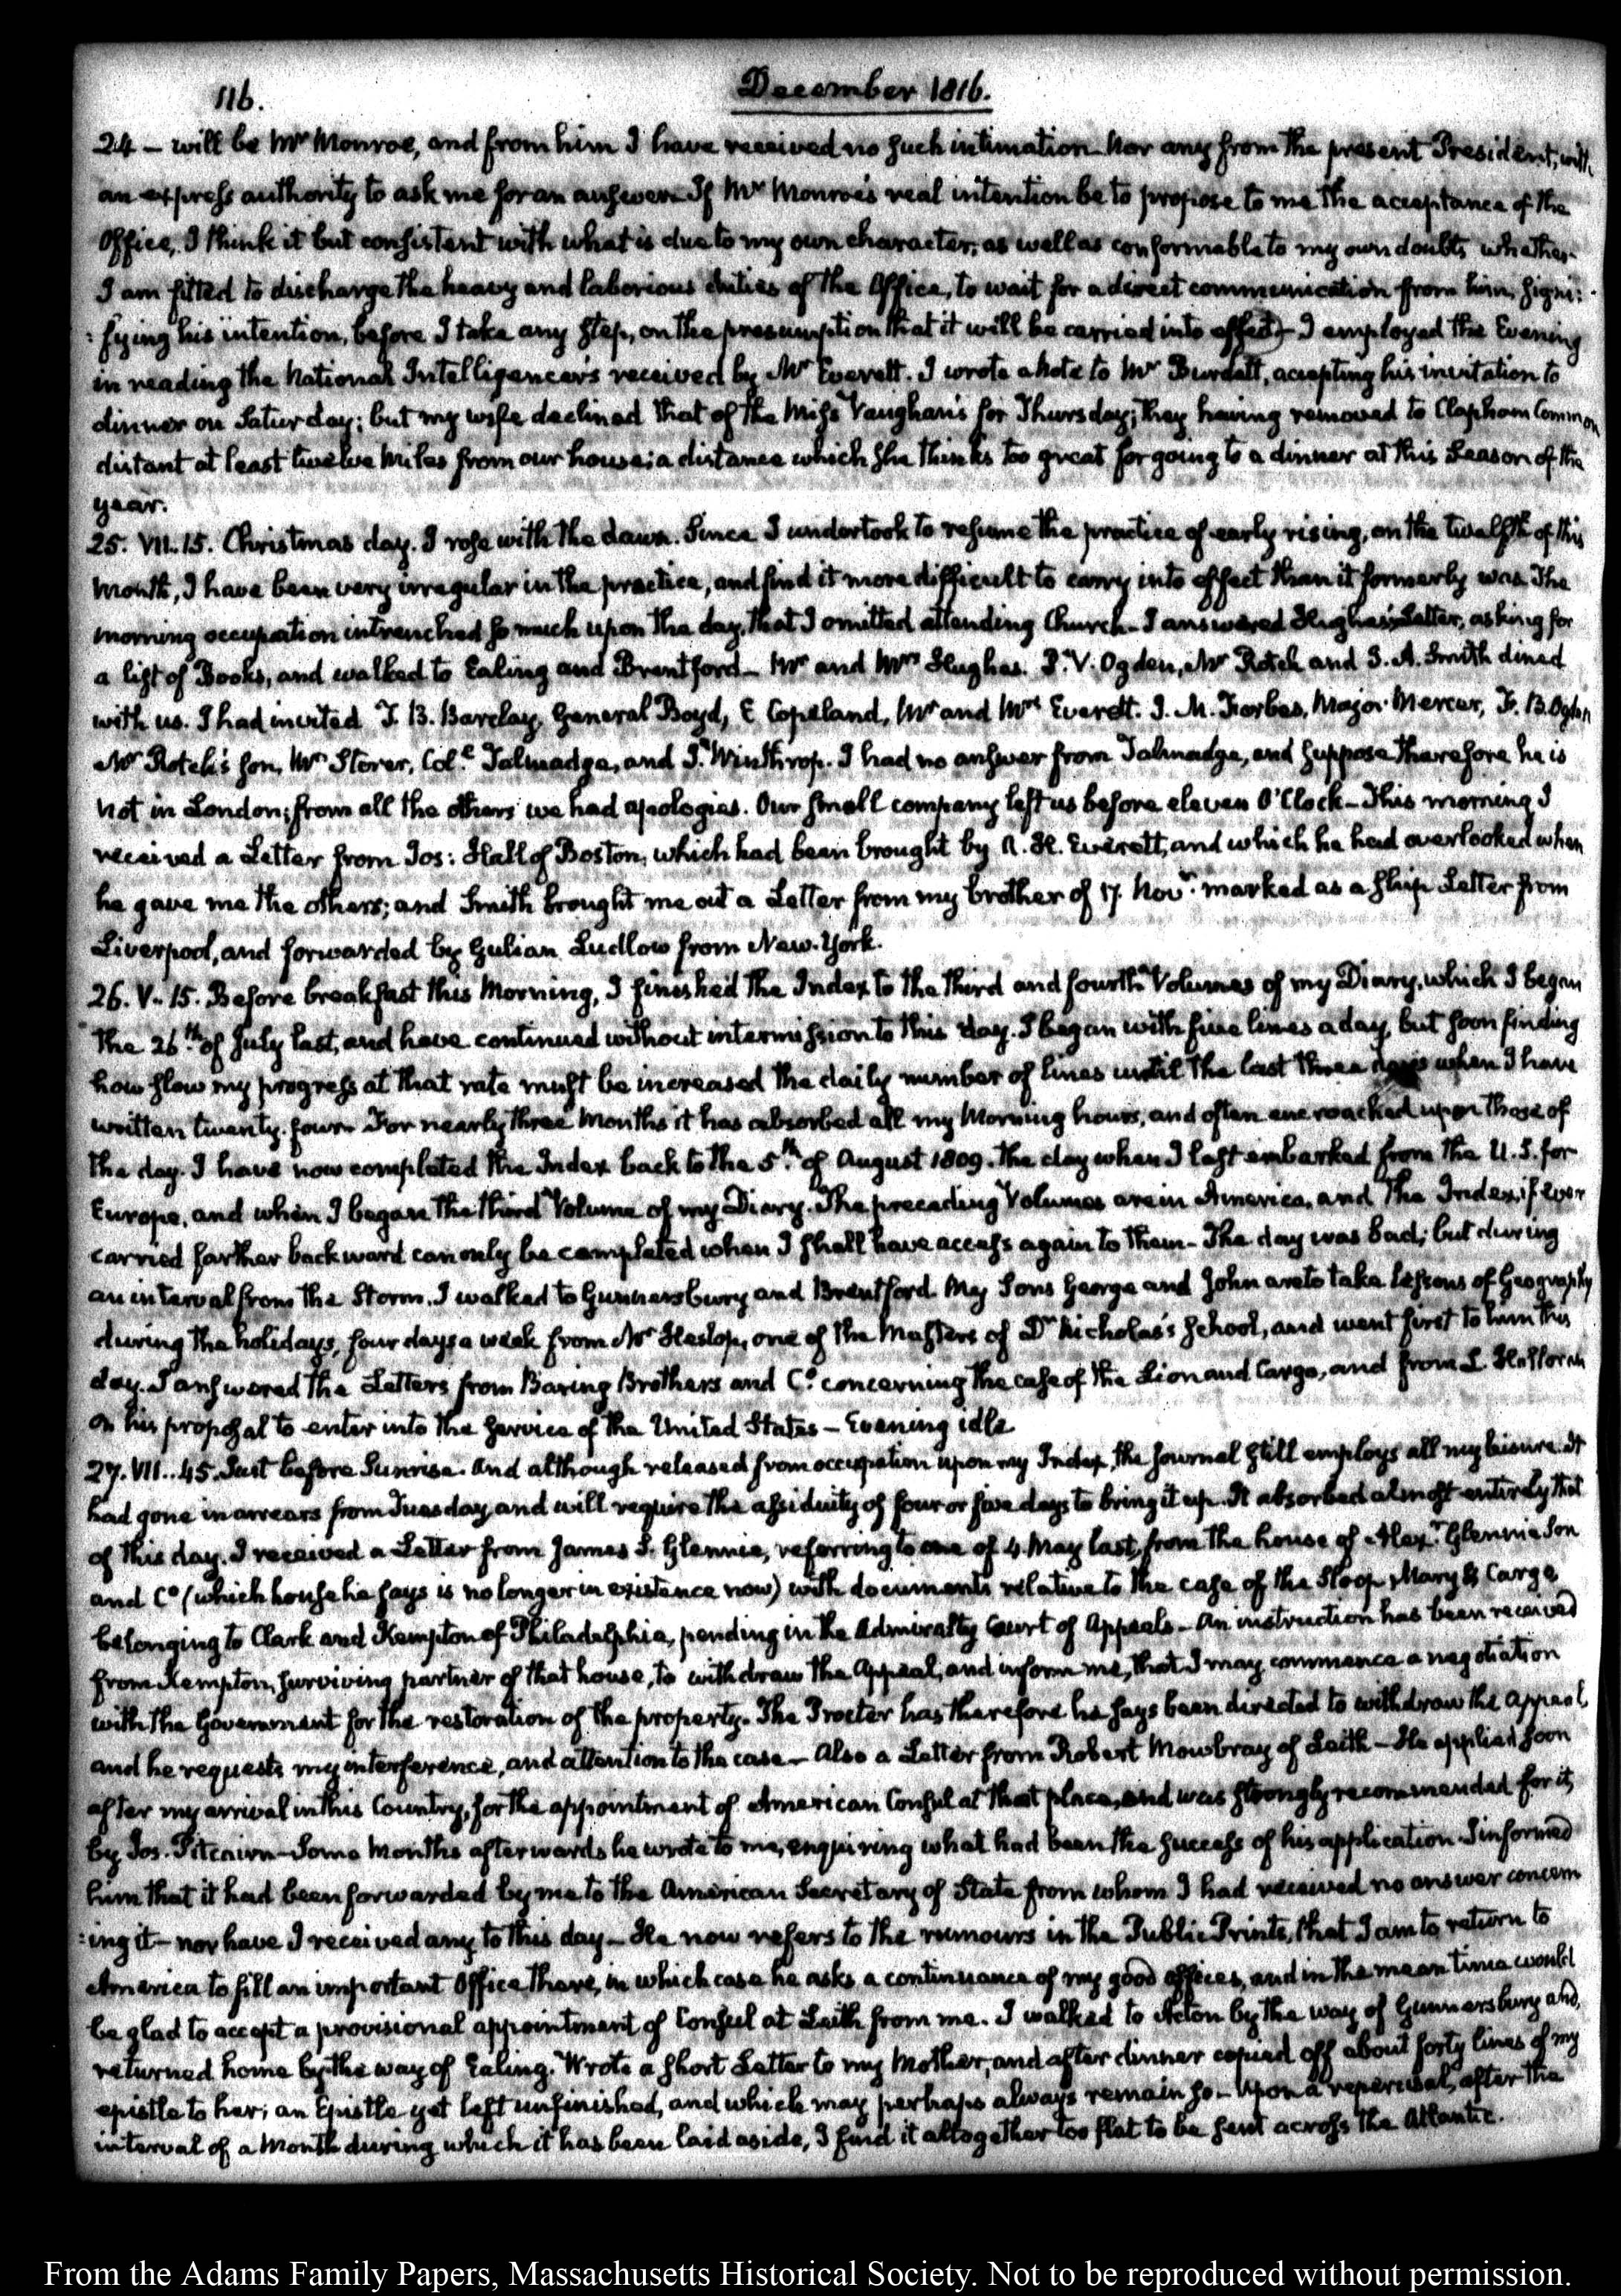 116.
December 1816.
24 – will be Mr Monroe, and from him I have received no such intimation – Nor any from the present President, with
an express authority to ask me for an answer. If Mr Monroe's real intention be to propose to me the acceptance of the
Office, I think it but consistent with what is due to my own character, as well as conformable to my own doubts whether
I am fitted to discharge the heavy and laborious duties of the Office, to wait for a direct communication from him, signi:
:fying his intention, before I take any step, on the presumption that it will be carried into effect – I employed the Evening
in reading the National Intelligencers received by Mr Everett. I wrote a Note to Mr Burdett, accepting his invitation to
dinner on Saturday; but my wife declined that of the Miss Vaughan's for Thursday; they having removed to Clapham Common
distant at least twelve miles from our house; a distance which she thinks too great for going to a dinner at this Season of the
year.
25. VII. 15. Christmas day. I rose with the dawn. Since I undertook to resume the practice of early rising, on the twelfth of this
Month, I have been very irregular in the practice, and find it more difficult to carry into effect than it formerly was. The
morning occupation intrenched so much upon the day, that I omitted attending Church – I answered Hughes's Letter, asking for
a list of Books, and walked to Ealing and Brentford – Mr and Mrs Hughes. D. V. Ogden, Mr Rotch and J. A. Smith dined
with us. I had invited T. B. Barclay, General Boyd, E Copeland, Mr and Mrs Everett. J. M. Forbes, Major Mercer, F. B. Ogden
Mr Rotch's son, Mr Storer, Col.e Talmadge, and J. Winthrop. I had no answer from Talmadge, and suppose therefore he is
not in London; from all the others we had apologies. Our small company left us before eleven O'Clock – This morning I
received a Letter from Jos: Hall of Boston, which had been brought by A. H. Everett, and which he had overlooked when
he gave me the others; and Smith brought me out a Letter from my brother of 17. Novr. marked as a ship Letter from
Liverpool, and forwarded by Gulian Ludlow from New-York.
26. V. 15. Before breakfast this Morning, I finished the Index to the third and fourth Volumes of my Diary, which I began
the 26th of July last, and have continued without intermission to this day. I began with five lines a day, but soon finding
how slow my progress at that rate must be increased the daily number of lines until the last three days when I have
written twenty-four. For nearly three Months it has absorbed all my Morning hours, and often encroached upon those of
the day. I have now completed the Index back to the 5th of August 1809. the day when I last embarked from the U. S. for
Europe, and when I began the third Volume of my Diary. The preceding Volumes are in America, and the Index, if ever
carried farther backward can only be completed when I shall have access again to them – The day was bad; but during
an interval from the Storm, I walked to Gunnersbury and Brentford. My Sons George and John are to take lessons of Geography
during the holidays, four days a week from Mr Heslop, one of the Masters of Dr Nicholas's School, and went first to him this
day. I answered the Letters from Baring Brothers and Co. concerning the case of the Lion and Cargo, and from L.
on his proposal to enter into the service of the United States – Evening idle
27. VII..45. Just before Sunrise. And although released from occupation upon my Index, the Journal still employs all my leisure. It
had gone in arrears from Tuesday and will require the assiduity of four or five days to bring it up. It absorbed almost entirely that
of this day. I received a Letter from James S. Glennie, referring to one of 4. May last, from the house of Alexr. Glennie Son
and Co (which house he says is no longer in existence now) with documents relative to the case of the Sloop Mary & Cargo
belonging to Clark and Kempton of Philadelphia, pending in the Admiralty Court of Appeals – An instruction has been received
from Kempton, surviving partner of that house, to withdraw the Appeal, and inform me, that I may commence a negotiation
with the Government for the restoration of the property. The Procter has therefore he says been directed to withdraw the Appeal,
and he requests my interference, and attention to the case – Also a Letter from Robert Mowbray of Leith – He applied soon
after my arrival in this Country, for the appointment of American Consul at that place, and was strongly recommended for it,
by Jos. Pitcairn – Some Months afterwards he wrote to me, enquiring what had been the success of his application. I informed
him that it had been forwarded by me to the American Secretary of State from whom I had received no answer concern
:ing it – nor have I received any to this day – He now refers to the rumours in the Public Prints, that I am to return to
America to fill an important Office there, in which case he asks a continuance of my good offices, and in the mean time would
be glad to accept a provisional appointment of Consul at Leith from me. I walked to Acton by the way of Gunnersbury and
returned home by the way of Ealing. Wrote a short Letter to my Mother, and after dinner copied off about forty lines of my
epistle to her; an Epistle yet left unfinished, and which may perhaps always remain so – Upon a reperusal, after the
interval of a Month during which it has been laid aside, I find it altogether too flat to be sent across the Atlantic.
From the Adams Family Papers, Massachusetts Historical Society. Not to be reproduced without permission.